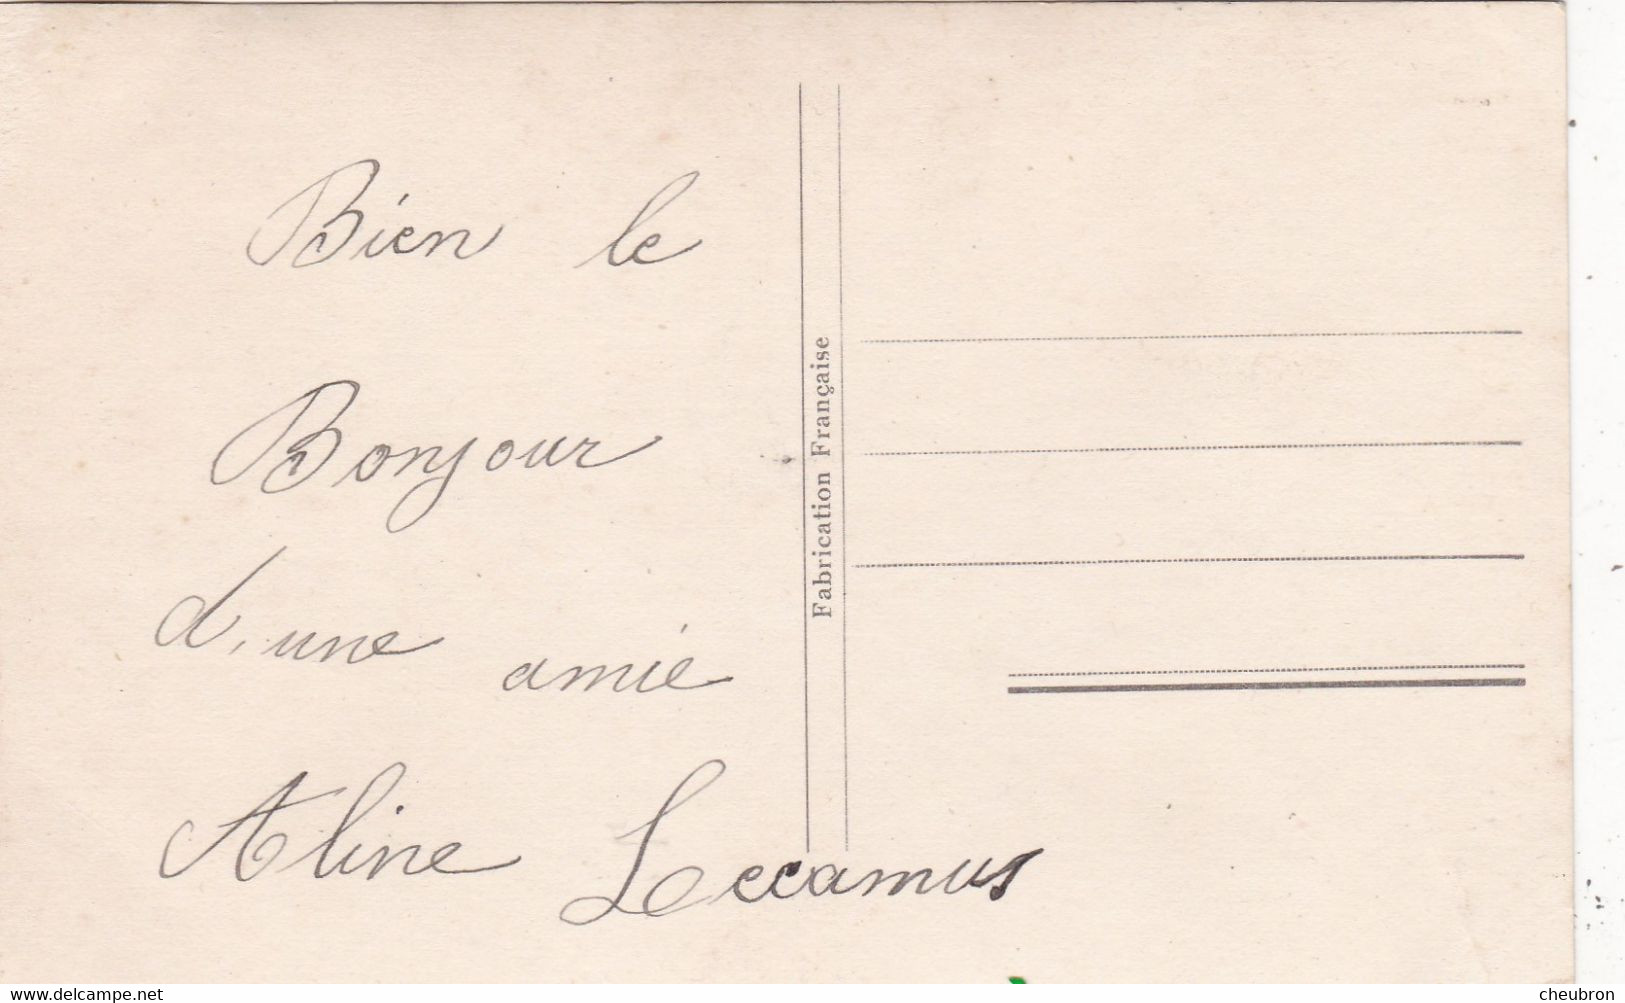 Bien le
Bonjour
d'une amie
Aline Leccamus
Fabrication Française
www.delcampe.net
cheubron